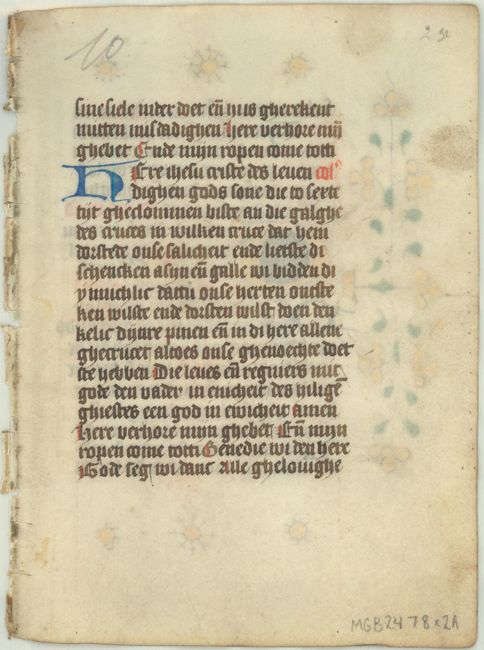 10
sine siele inder doet eñ is gherekent
mitten misdadighen here verhore mijn
ghebet Ende mijn ropen come totti
Here ihesu criste des leuen col'
dighen gods sone die to sexte
tijt gheclommen biste an die galghe
des cruces in wilken cruce dat hem
dorstede onse salicheit ende lietste di
schencken asijn eñ galle wi bidden di
ynnichlic dattu onse herten ontste
ken wilste ende dorsten wilst doen den
kelic dijnre pinen eñ in di here allene
ghecrucet altoes onse ghenoechte doet
ste hebben Die leues eñ regniers mit
gode den vader in enicheit des hilighē
ghiestes een god in ewicheit Amen
here verhore mijn ghebet Eñ mijn
ropen come totti Benedie wi den here
Gode seg wi danc Alle ghelouighe
MGB2478x2A